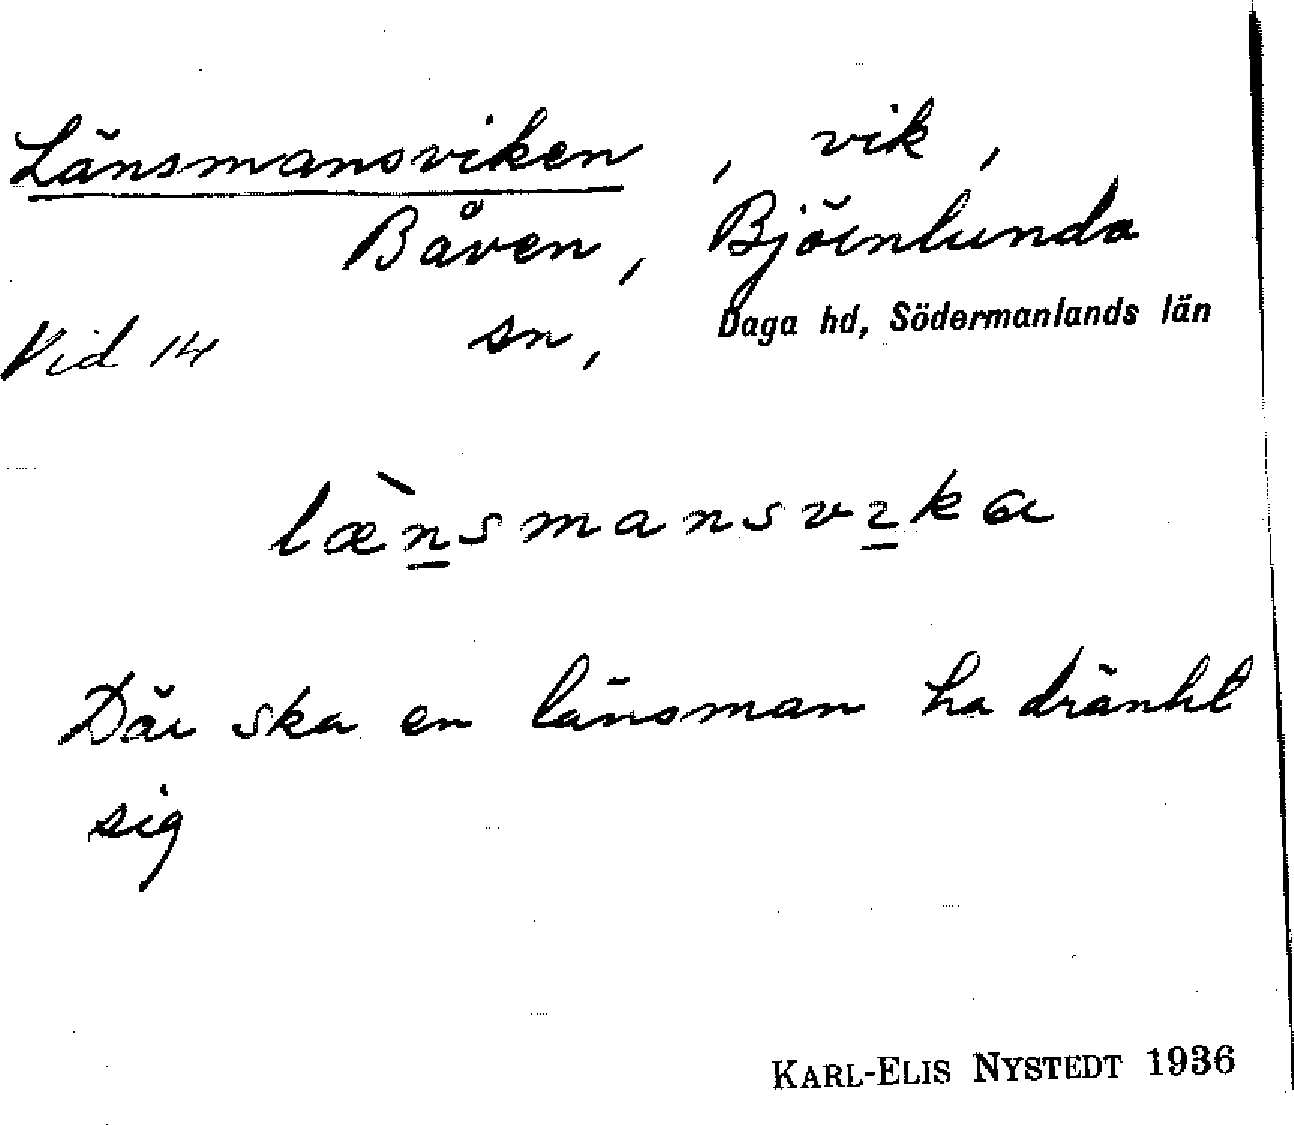 Länsmansviken, vik,
Båven, Björnlunda
Vid 14 sn, Daga hd, Södermanlands län
læ̀n̲smansvı̲ka
Där ska en länsman ha dränkt
sig
KARL-ELIS NYSTEDT 1936